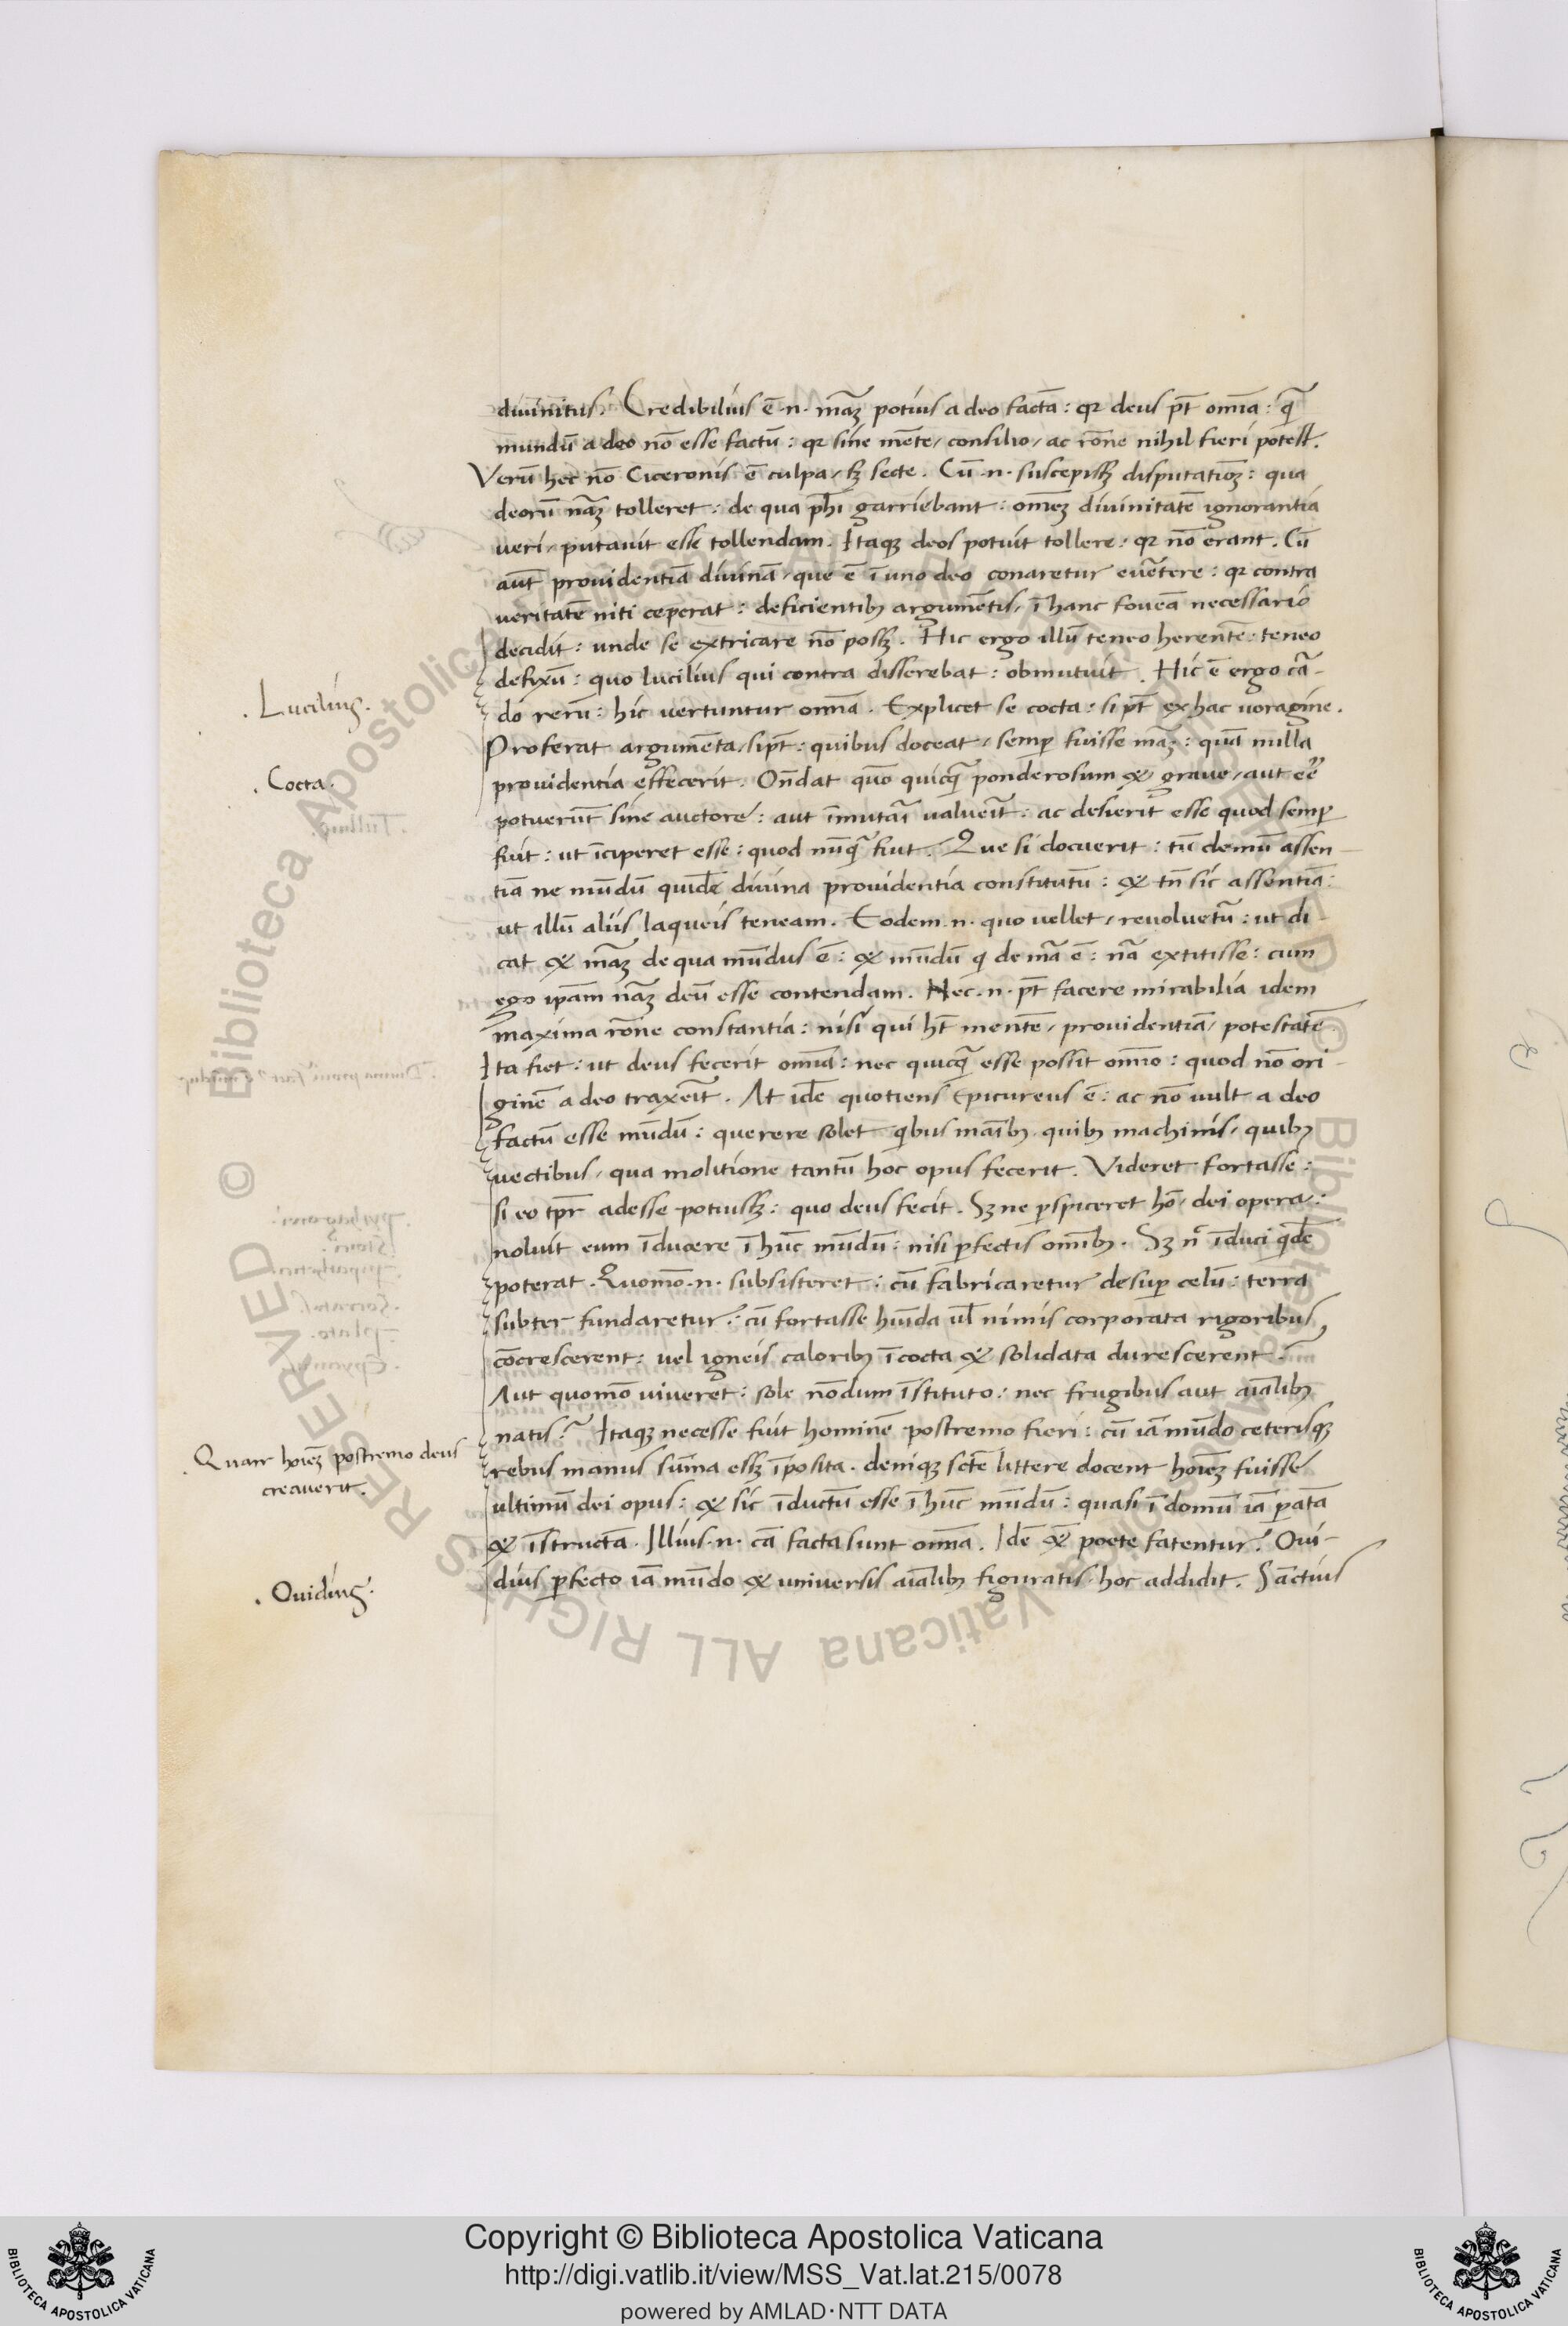 divinitus. Credibilius ē .n. mãʒ potius a deo factā: qꝛ deus pт̄ omīa: q̃
mundū a deo nō esse factū: qꝛ sine mēte, consilio, ac rōne nihil fieri potest.
Verū hec nō Ciceronis ē culpa, sʒ secte. Cū .n. suscepissʒ disputatiōʒ: qua
deorū nāʒ tolleret: de qua ph̄i garriebant: om̄eʒ divinitatē ignorantia
veri, putavit esse tollendam. Itaqʒ deos potuit tollere: qꝛ nō erant. Cū
aūt providentiā divinā, que ē ī uno deo conaretur evētere: qꝛ contra
veritatē niti ceperat: deficientibꝫ argumētis, ī hanc foveā necessario
decidit: unde se extricare nō possʒ. Hic ergo illū teneo herentē: teneo
defixū: quo lucilius qui contra disserebat: obmutuit. Hic ē ergo cā-
do rerū: hic vertuntur omīa. Explicet se cocta: si pт̄ ex hac voragine.
Proferat argumēta, si pт̄: quibus doceat, semꝑ fuisse māʒ: quā nulla
providentia effecerit. Oñdat quō quicq̃ ponderosum & grave, aut eē
potuerūt sine auctore: aut īmutãi valueīt: ac desierit esse quod semꝑ
fuit: ut īciperet esse: quod nūq̃ fuit. Que si docuerit: tū demū assen-
tiā ne mūdū quidē divina providentia constitutū: & tñ sic assentiā:
ut illū aliis laqueis teneam. Eodem .n. quo vellet, revolvetũ: ut di-
cat & māʒ de qua mūdus ē: & mūdū q̇ de mã ē: nã extitisse: cum
ego ip̄am nāʒ deū esse contendam. Nec .n. pт̄ facere mirabilia idem
maxima rōne constantia: nisi qui ht̄ mentē, providentiā, potestatē.
Ita fiet: ut deus fecerit omīa: nec quicq̃ esse possit omīo: quod nō ori-
ginē a deo traxeīt. At idē quotiens Epicureus ē: ac nō vult a deo
factū esse mūdū: querere solet q̇bus maībꝫ, quibꝫ machinis, quibꝫ
vectibus, qua molitione tantū hoc opus fecerit. Videret fortasse:
si eo tp̄r adesse potuissʒ: quo deus fecit. Sʒ ne ꝑspiceret hō, dei opera:
noluit eum īducere ī hūc mūdū: nisi ꝑfectis omībꝫ. Sʒ n̄ īduci q̇dē
poterat. Quomō .n. subsisteret: cū fabricaretur desuꝑ celū: terra
subter fundaretur: cū fortasse hūida ul̄ nimis corporata rigoribus
cōcrescerent: vel igneis caloribꝫ īcocta & solidata durescerent?
Aut quomō viveret: sole nōdum īstituto: nec frugibus aut aīalibꝫ
natis? Itaqʒ necesse fuit hominē postremo fieri: cū iā mūdo ceterisqʒ
rebus manus sūma essʒ īposita. deniqʒ sctē littere docent hoīeʒ fuisse
ultimū dei opus: & sic īductū esse ī hūc mūdū: quasi ī domū iā ꝑatā
& īstructā. Illius .n. cā facta sunt omīa. Idē & poete fatentur. Ovi-
dius ꝑfecto iā mūdo & universis aīalibꝫ figuratis hoc addidit. Sāctius
. Lucilius.
. Cocta.
. Quare hoīeʒ postremo deus
creaverit.
. Ovidius.
Copyright © Biblioteca Apostolica Vaticana
http://digi.vatlib.it/view/MSS_Vat.lat.215/0078
powered by AMLAD·NTT DATA
BIBLIOTECA APOSTOLICA VATICANA
BIBLIOTECA APOSTOLICA VATICANA
© Biblioteca Apostolica Vaticana ALL RIGHTS RESERVED